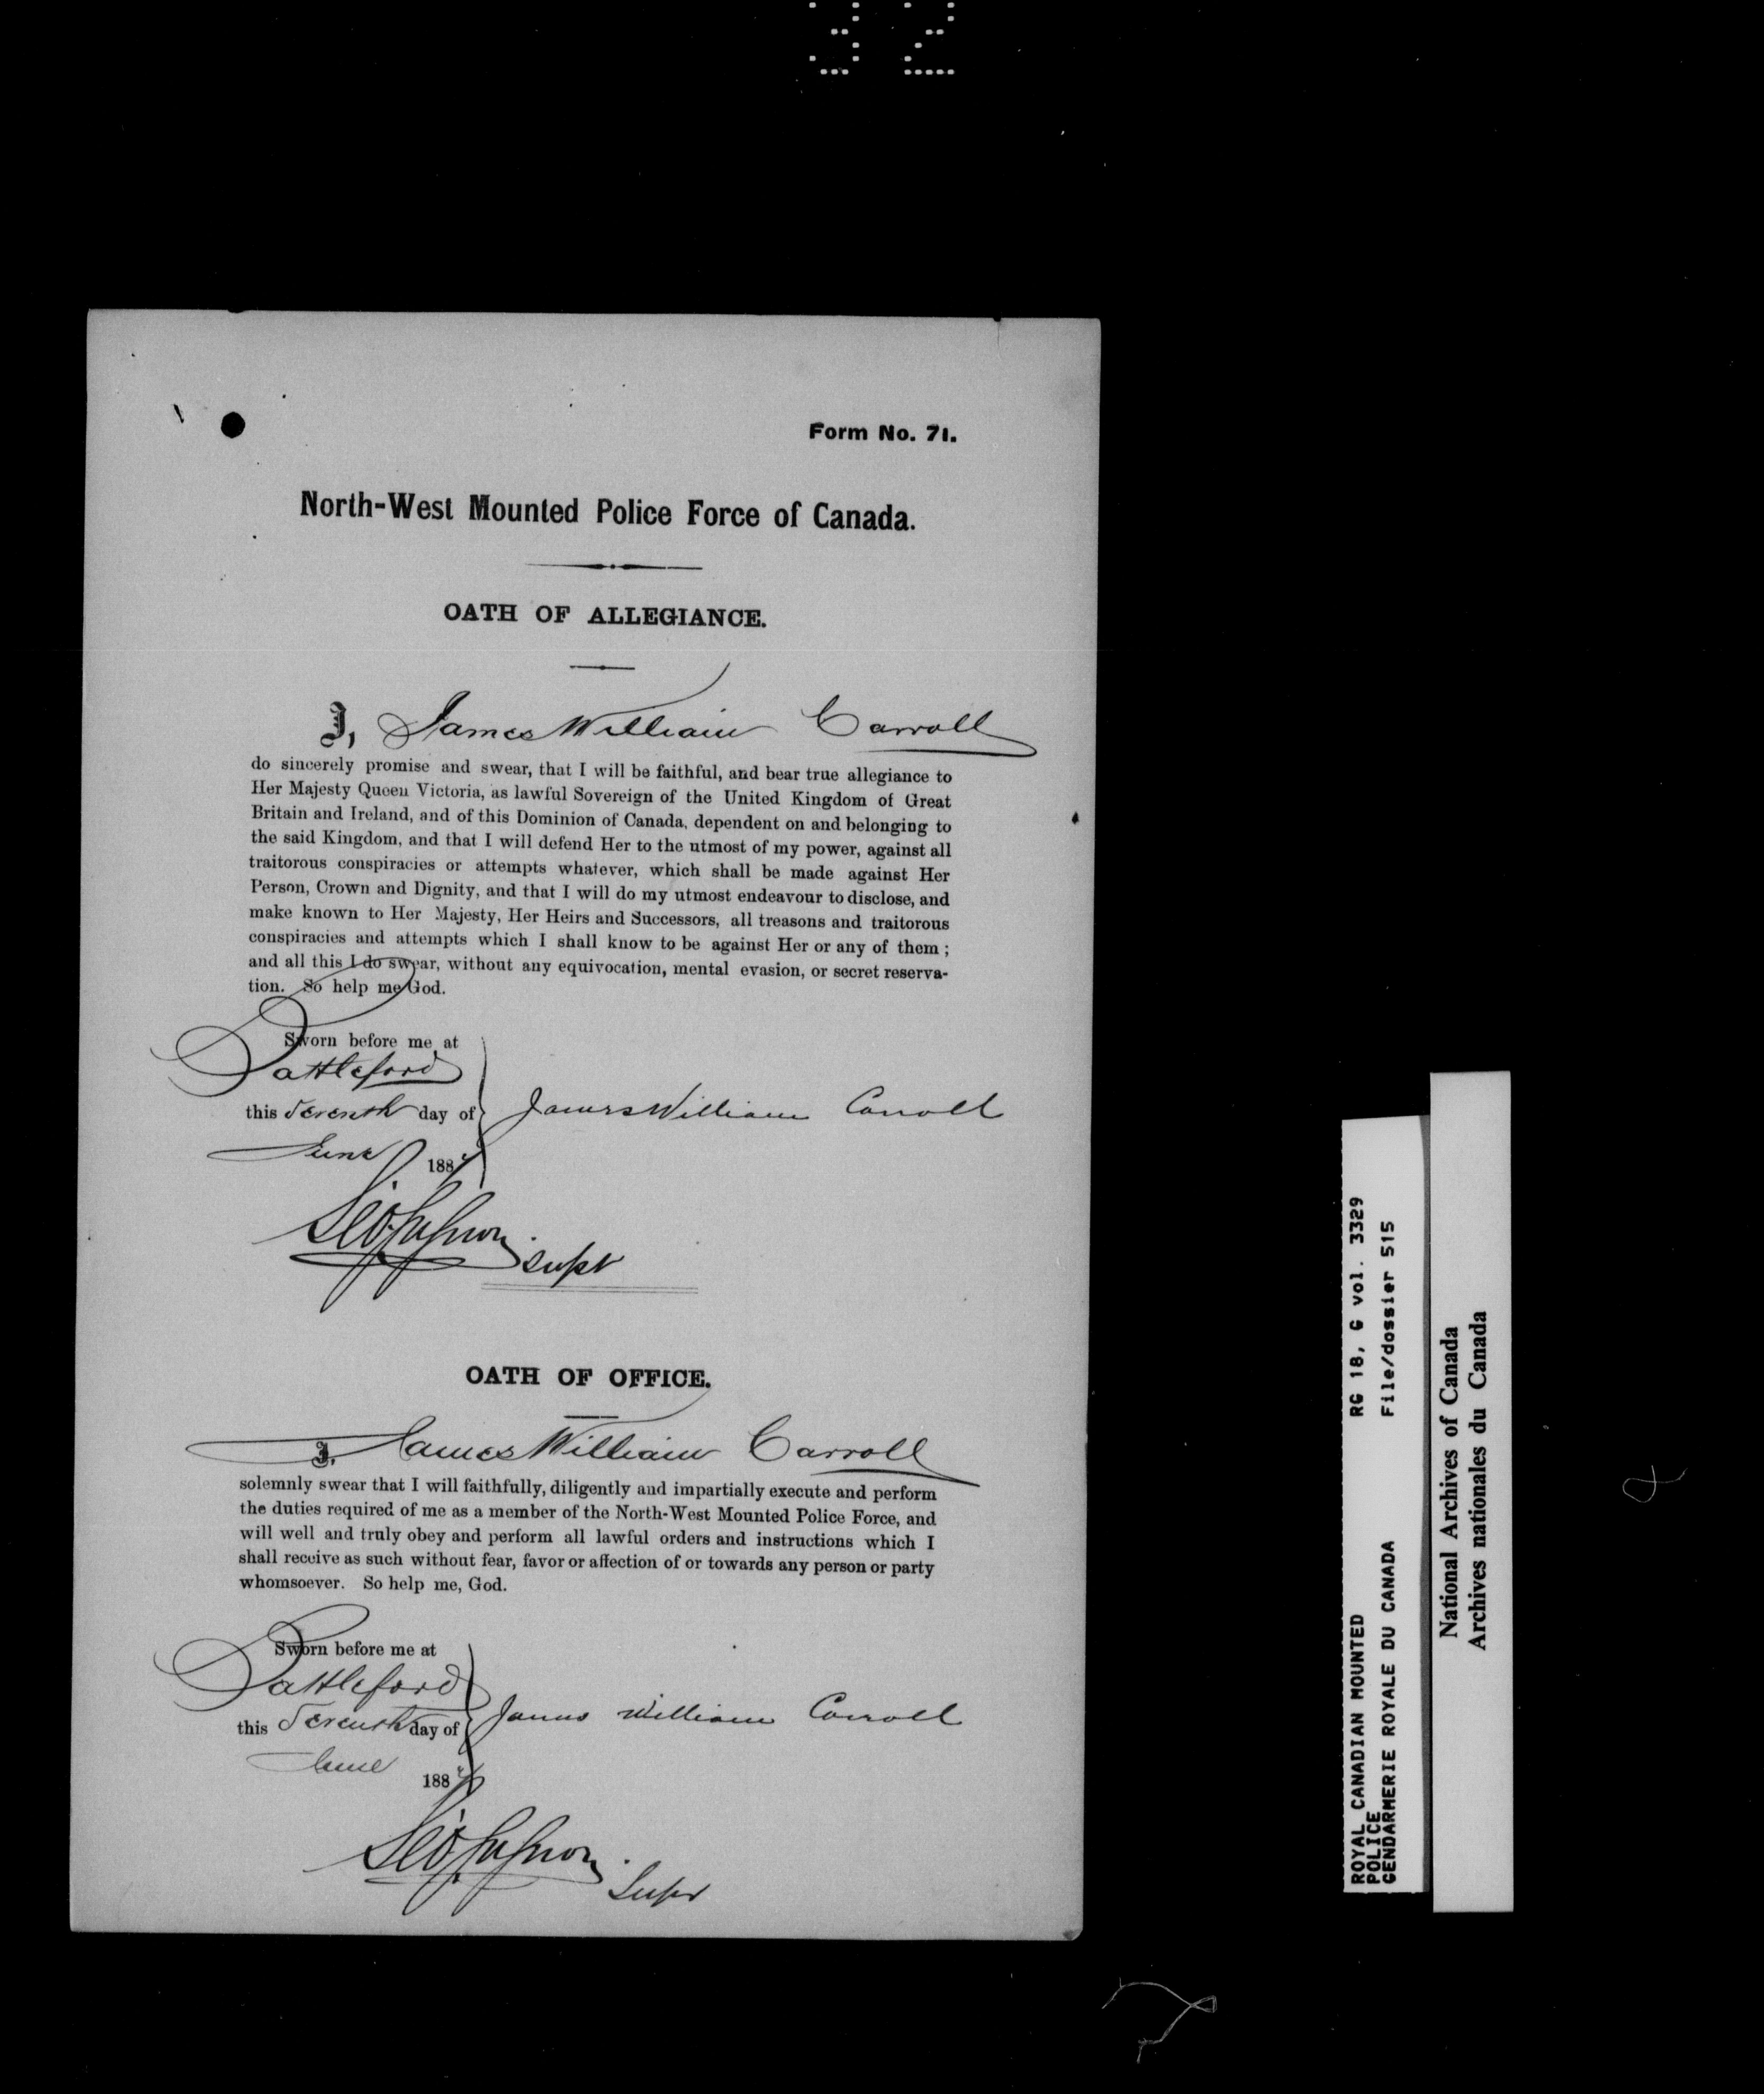 32
Form No. 71.
North-West Mounted Police Force of Canada.
OATH OF ALLEGIANCE.
I, James William Carroll
do sincerely promise and swear, that I will be faithful, and bear true allegiance to
Her Majesty Queen Victoria, as lawful Sovereign of the United Kingdom of Great
Britain and Ireland, and of this Dominion of Canada, dependent on and belonging to
the said Kingdom, and that I will defend Her to the utmost of my power, against all
traitorous conspiracies or attempts whatever, which shall be made against Her
Person, Crown and Dignity, and that I will do my utmost endeavour to disclose, and
make known to Her Majesty, Her Heirs and Successors, all treasons and traitorous
conspiracies and attempts which I shall know to be against Her or any of them ;
and all this I do swear, without any equivocation, mental evasion, or secret reserva-
tion. So help me God.
Sworn before me at
Battleford
this Seventh day of James William Carroll
June 188
Supt
OATH OF OFFICE.
I, James William Carroll
solemnly swear that I will faithfully, diligently and impartially execute and perform
the duties required of me as a member of the North-West Mounted Police Force, and
will well and truly obey and perform all lawful orders and instructions which I
shall receive as such without fear, favor or affection of or towards any person or party
whomsoever. So help me, God.
Sworn before me at
Battleford
this Seventh day of James William Carroll
June 188
Supt
ROYAL CANADIAN MOUNTED RG 18, G vol. 3329
POLICE
GENDARMERIE ROYALE DU CANADA File/dossier 515
National Archives of Canada
Archives nationales du Canada